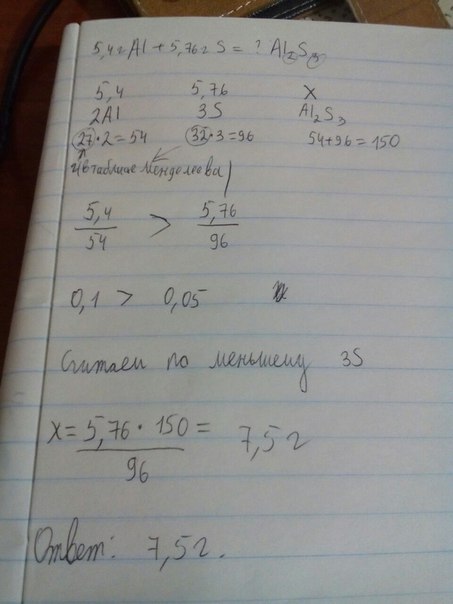 5,4г Al + 5,76г S = ? Al2S3
5,4 5,76 X
2Al 3S Al2S3
27·2=54 32·3=96 54+96=150
(в таблице Менделеева)
5,4/54 > 5,76/96
0,1 > 0,05
Считаем по меньшему 3S
X = 5,76·150/96 = 7,5г
Ответ: 7,5г.